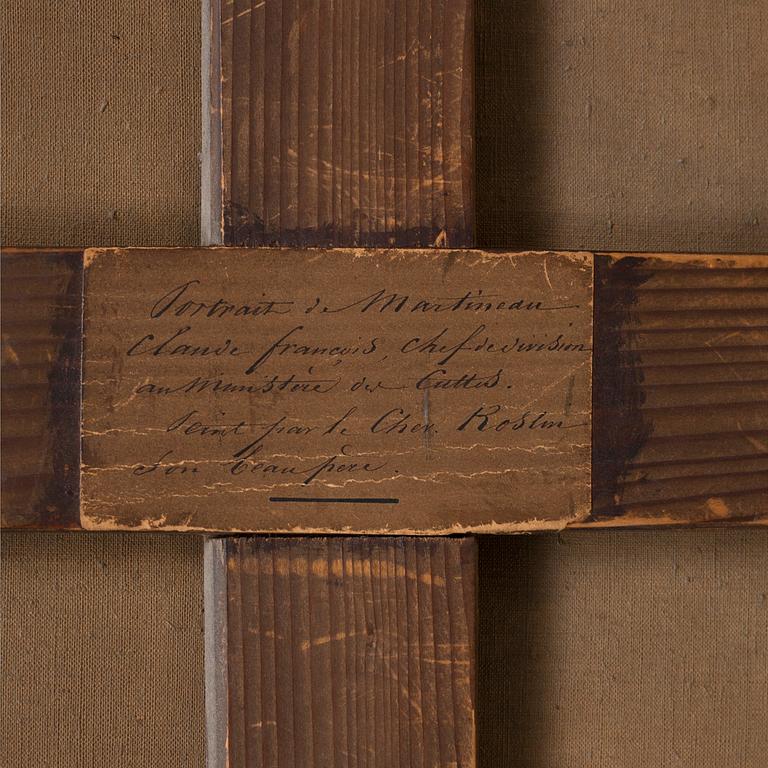 Portrait de Martineau
Claude françois, chef de division
au Ministère des Cultes.
Peint par le Chev. Roslin
Son beau père.